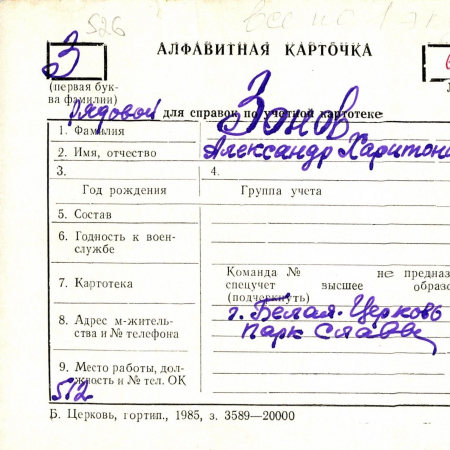 526
все по 1 экз
З
АЛФАВИТНАЯ КАРТОЧКА
(первая бук-
ва фамилии)
Рядовой для справок по учетной картотеке
1. Фамилия Зонов
2. Имя, отчество Александр Харитони
3. 4.
Год рождения Группа учета
5. Состав
6. Годность к воен-
службе
7. Картотека
Команда № не предназ
спецучет высшее образо
(подчеркнуть)
8. Адрес м-житель-
ства и № телефона
г. Белая-Церковь
парк Славы
9. Место работы, дол-
жность и № тел. ОК
512
Б. Церковь, гортип., 1985, з. 3589—20000